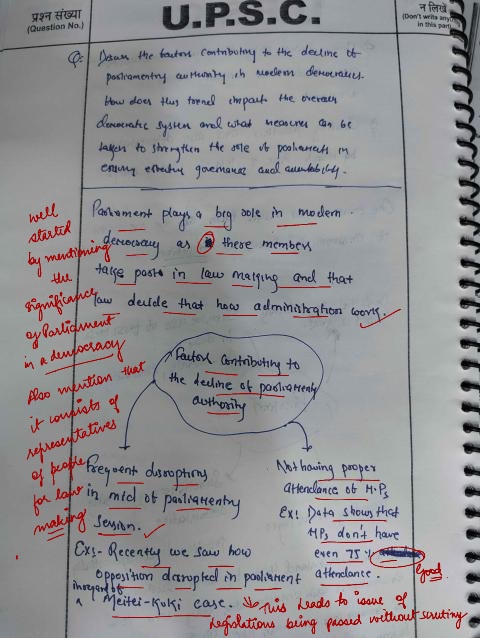 प्रश्न संख्या
(Question No.)
U.P.S.C.
न लिखें
(Don't write any
in this part)
Q: Discuss the factors contributing to the decline of
parliamentry authority in modern democracies.
How does this trend impact the overall
democratic system and what measures can be
taken to strengthen the role of parliaments in
ensuring effective governance and accountability.
Parliament plays a big role in modern
democracy as these members
take part in law making and that
law decide that how administration works.
well
started
by mentioning
the
significance
of Parliament
in a democracy
Also mention that
it consists of
representatives
of people
for law
making
Factors contributing to
the decline of parliamentry
authority
Frequent disruptions
in mid of parliamentry
session.
Ex:- Recently we saw how
opposition disrupted in parliament
in regard of
Meitei-Kuki case.
Not having proper
attendance of M.Ps
Ex: Data shows that
MPs don't have
even 75%
attendance.
Good
This leads to issue of
legislations being passed without scrutiny